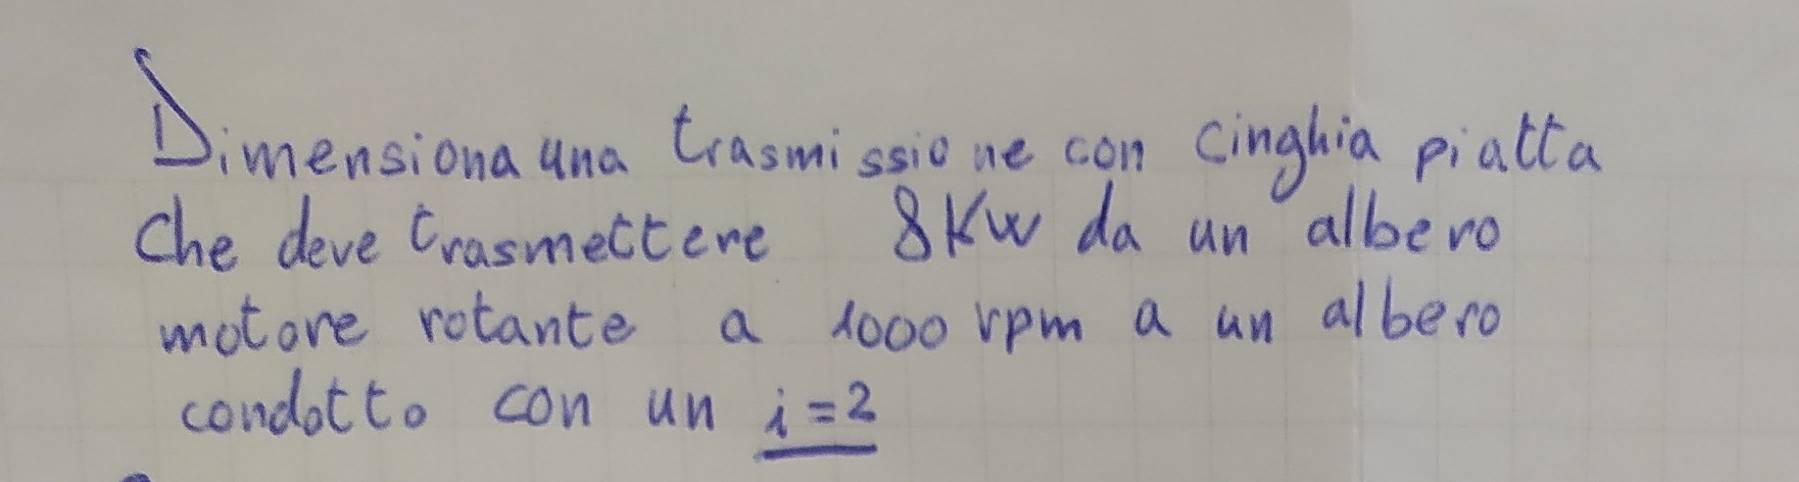 Dimensiona una trasmissione con cinghia piatta
che deve trasmettere 8KW da un albero
motore rotante a 1000 rpm a un albero
condotto con un i=2